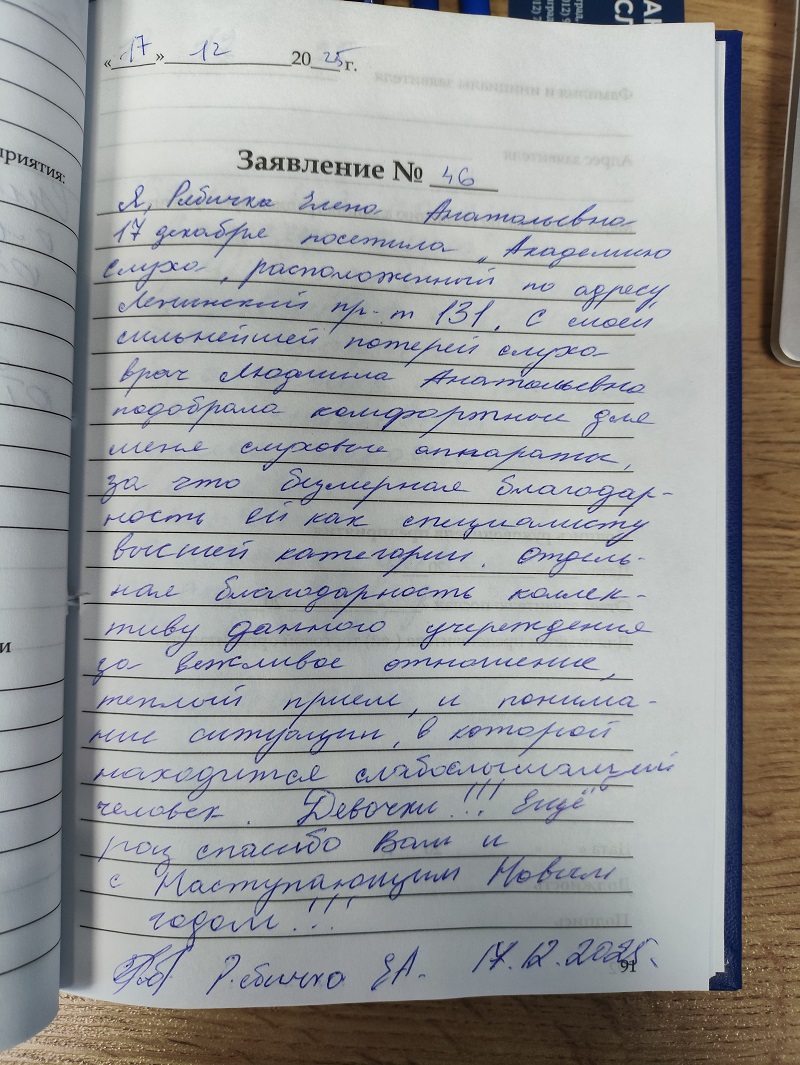 АК
СЛ
«17» 12 2025 г.
приятия:
Заявление № 46
Я, Рябичко Елена Анатольевна
17 декабря посетила „Академию
слуха", расположенный по адресу
Ленинский пр-т 131. С моей
сильнейшей потерей слуха
врач Людмила Анатольевна
подобрала комфортные для
меня слуховые аппараты,
за что безмерная благодар-
ность ей как специалисту
высшей категории. Отдель-
ная благодарность коллек-
тиву данного учреждения
за вежливое отношение,
и
теплый прием, и понима-
ние ситуации, в которой
находится слабослышащий
человек. Девочки!!! Ещё
раз спасибо Вам и
с Наступающим Новым
годом!!!
Рябичко ЕА. 17.12.2025.
91